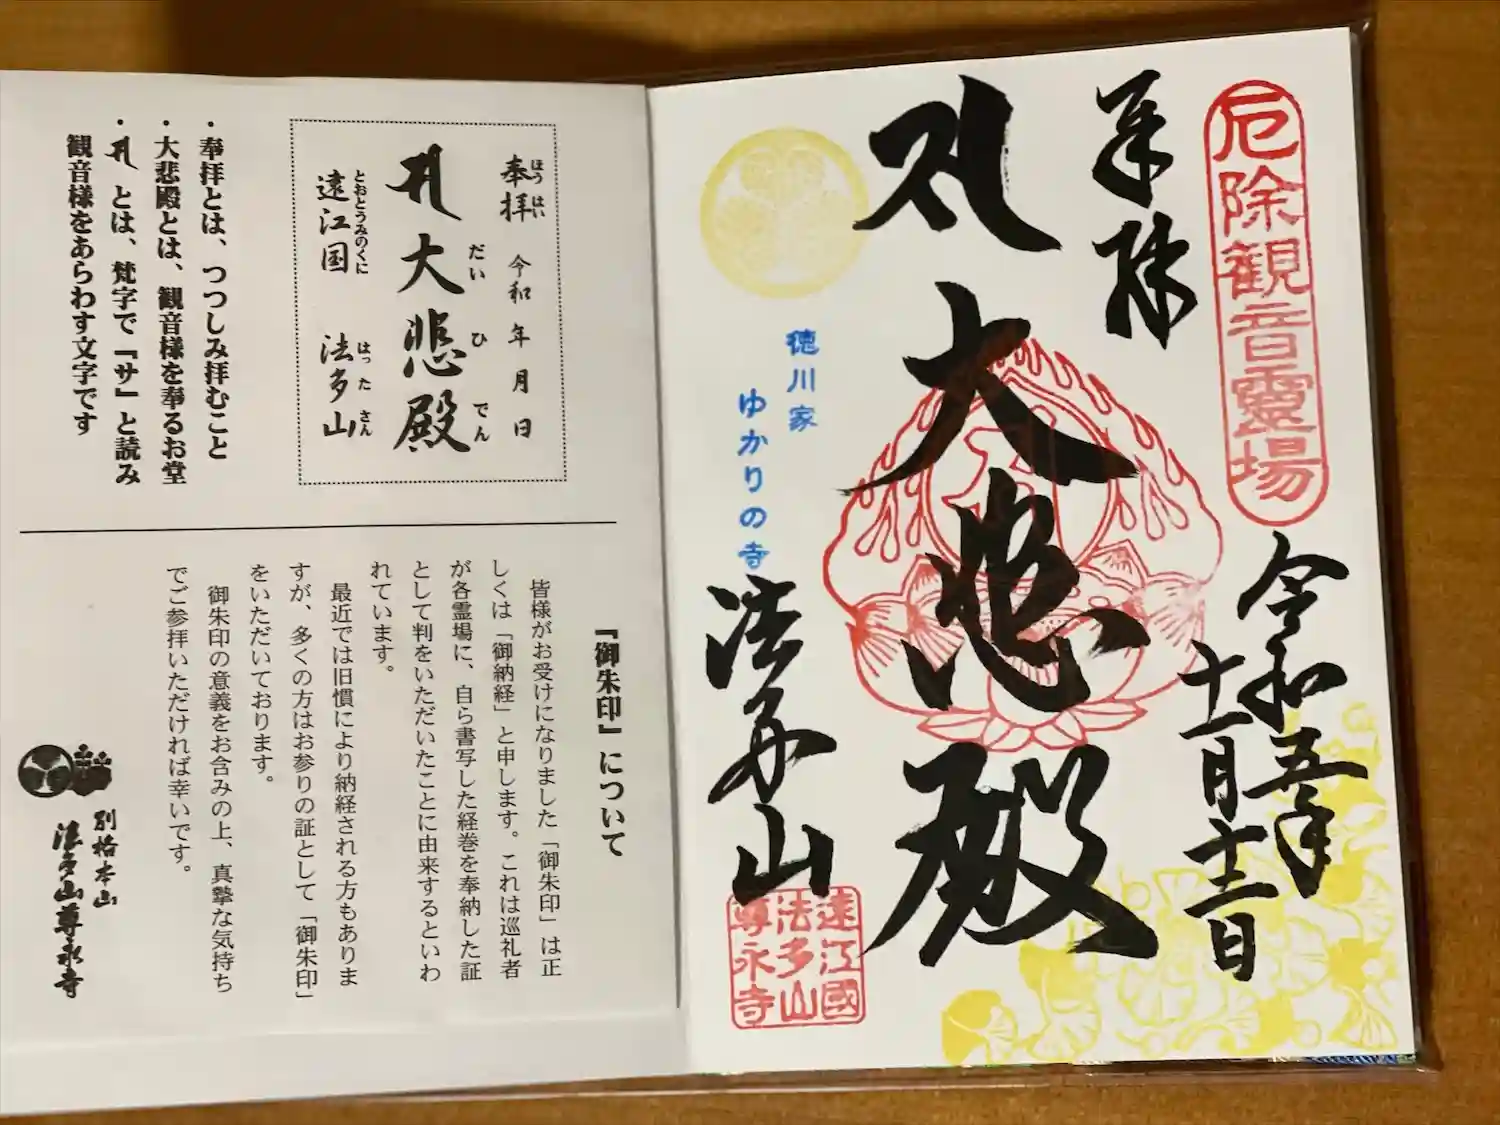 厄除観音霊場
奉拝
令和五年
十一月十二日
大悲殿
徳川家
ゆかりの寺
法多山
遠江國
法多山
尊永寺
奉拝 令和 年 月 日
ほう はい
大悲殿
だい ひ でん
遠江国 法多山
とおとうみのくに はったさん
・奉拝とは、つつしみ拝むこと
・大悲殿とは、観音様を奉るお堂
・ とは、梵字で『サ』と読み
観音様をあらわす文字です
『御朱印』について
皆様がお受けになりました「御朱印」は正
しくは「御納経」と申します。これは巡礼者
が各霊場に、自ら書写した経巻を奉納した証
として判をいただいたことに由来するといわ
れています。
最近では旧慣により納経される方もありま
すが、多くの方はお参りの証として「御朱印」
をいただいております。
御朱印の意義をお含みの上、真摯な気持ち
でご参拝いただければ幸いです。
別格本山
法多山尊永寺